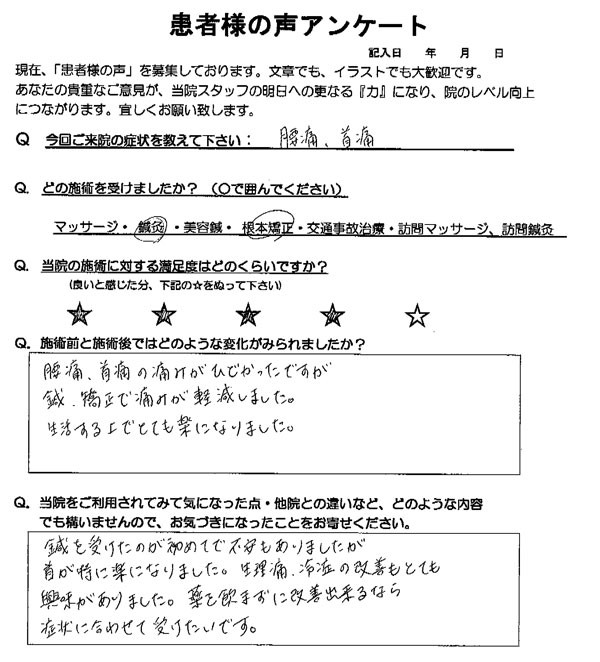 患者様の声アンケート
記入日　年　月　日
現在、「患者様の声」を募集しております。文章でも、イラストでも大歓迎です。
あなたの貴重なご意見が、当院スタッフの明日への更なる『力』になり、院のレベル向上
につながります。宜しくお願い致します。
Q　今回ご来院の症状を教えて下さい：　腰痛、首痛
Q.　どの施術を受けましたか？（〇で囲んでください）
マッサージ・鍼灸・美容鍼・根本矯正・交通事故治療・訪問マッサージ、訪問鍼灸
Q.　当院の施術に対する満足度はどのくらいですか？
（良いと感じた分、下記の☆をぬって下さい）
★ ★ ★ ★ ☆
Q.　施術前と施術後ではどのような変化がみられましたか？
腰痛、首痛の痛みがひどかったですが
鍼、矯正で痛みが軽減しました。
生活する上でとても楽になりました。
Q.　当院をご利用されてみて気になった点・他院との違いなど、どのような内容
でも構いませんので、お気づきになったことをお寄せください。
鍼を受けたのが初めてで不安もありましたが
首が特に楽になりました。生理痛、冷症の改善もとても
興味がありました。薬を飲まずに改善出来るなら
症状に合わせて受けたいです。